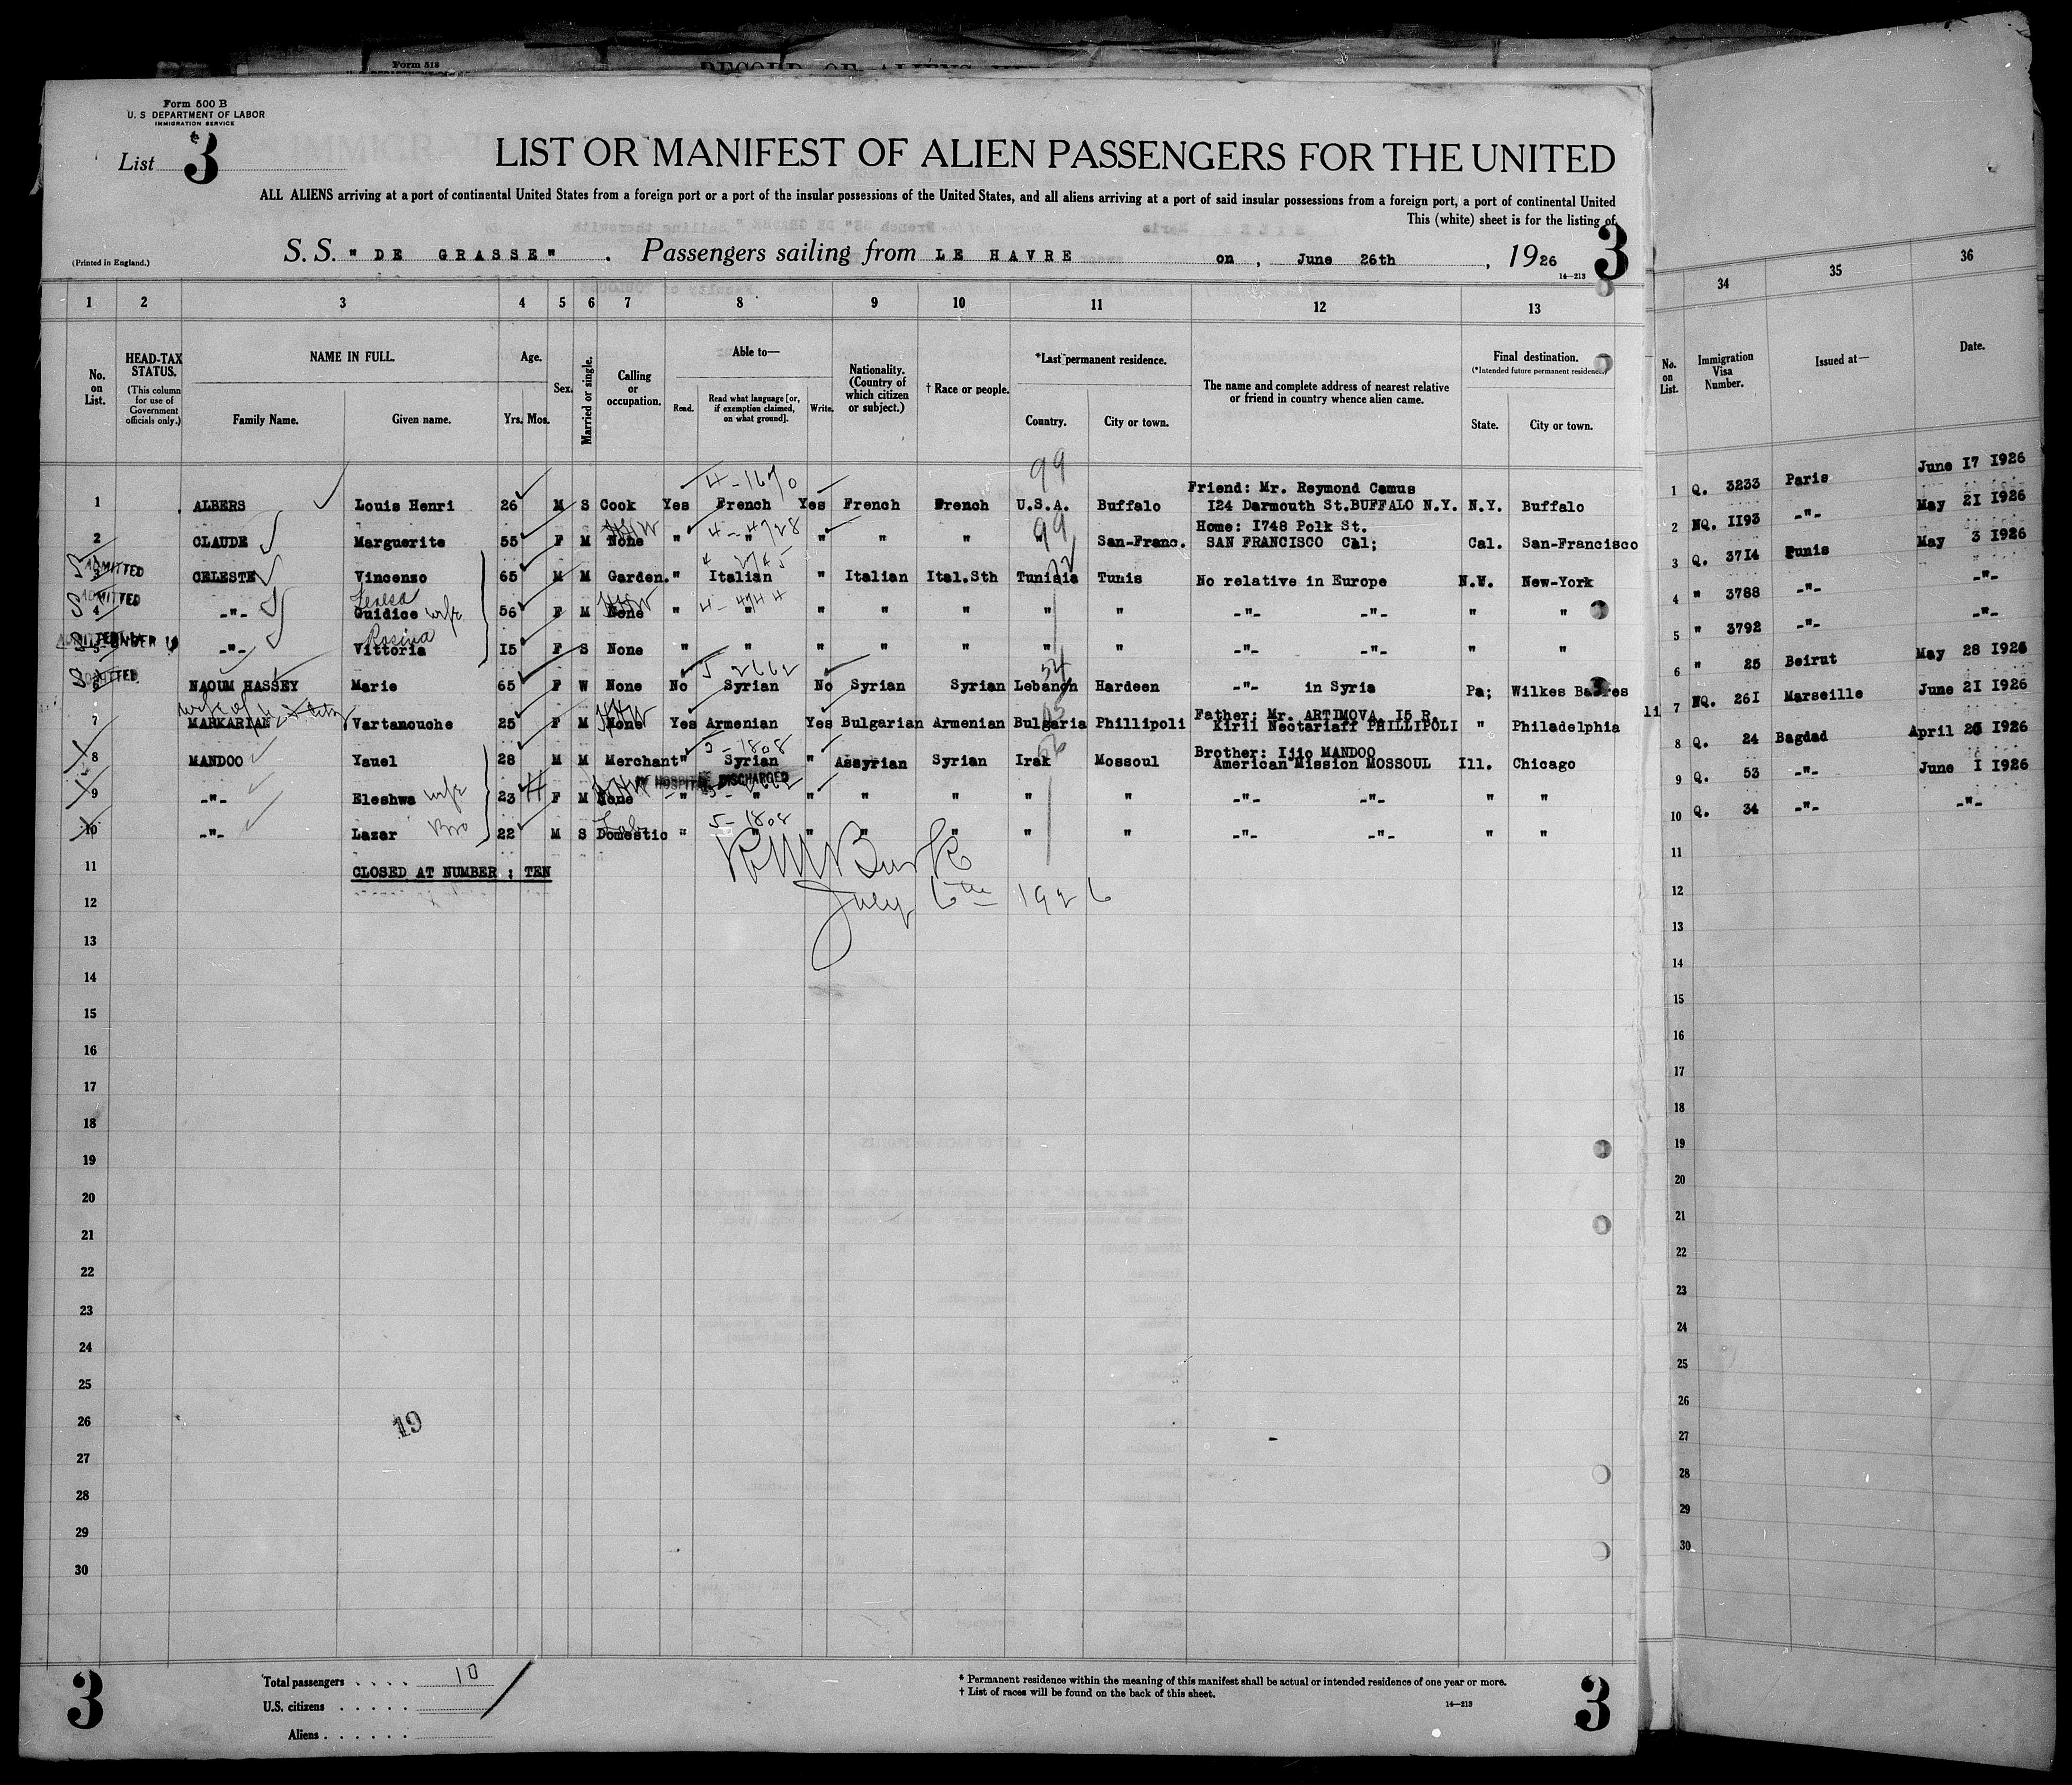 Form 500 B
U. S DEPARTMENT OF LABOR
IMMIGRATION SERVICE
List 3
LIST OR MANIFEST OF ALIEN PASSENGERS FOR THE UNITED
ALL ALIENS arriving at a port of continental United States from a foreign port or a port of the insular possessions of the United States, and all aliens arriving at a port of said insular possessions from a foreign port, a port of continental United
This (white) sheet is for the listing of
3
(Printed in England.)
S. S. "DE GRASSE" . Passengers sailing from LE HAVRE on , June 26th , 1926
14-213
1 2 3 4 5 6 7 8 9 10 11 12 13 34 35 36
No. on List.
HEAD-TAX STATUS.
(This column for use of Government officials only.)
NAME IN FULL.
Family Name. Given name.
Age.
Yrs. Mos.
Sex.
Married or single.
Calling or occupation.
Able to—
Read. Read what language [or, if exemption claimed, on what ground]. Write.
Nationality. (Country of which citizen or subject.)
† Race or people.
*Last permanent residence.
Country. City or town.
The name and complete address of nearest relative or friend in country whence alien came.
Final destination.
(*Intended future permanent residence.)
State. City or town.
No. on List.
Immigration Visa Number.
Issued at—
Date.
99
4-1670
1 ALBERS Louis Henri 26 M S Cook Yes French Yes French French U.S.A. Buffalo Friend: Mr. Reymond Camus I24 Darmouth St.BUFFALO N.Y. N.Y. Buffalo 1 Q. 3233 Paris June I7 I926
4-4728
99
2 CLAUDE Marguerite 55 F M None " " " " " " San-Franc. Home: I748 Polk St. SAN FRANCISCO Cal; Cal. San-Francisco 2 NQ. II93 -"- May 2I I926
ADMITTED
3 CELESTE Vincenzo 65 M M Garden. " Italian " Italian Ital.Sth Tunisia Tunis No relative in Europe N.Y. New-York 3 Q. 37I4 Tunis May 3 I926
ADMITTED
Teresa
4-4744
4 -"- Guidice wife 56 F M None " " " " " " -"- -"- " " 4 " 3788 -"- -"-
Rosina
5 -"- Vittoria I5 F S None " " " " " " -"- -"- " " 5 " 3792 -"- -"-
ADMITTED
5 2662
54
6 NAOUM HASSEY Marie 65 F W None No Syrian No Syrian Syrian Lebanon Hardeen -"- in Syria Pa; Wilkes Barres 6 " 25 Beirut May 28 I926
wife of
7 MARKARIAN Vartanouche 25 F M None Yes Armenian Yes Bulgarian Armenian Bulgaria Phillipoli Father: Mr. ARTIMOVA. I5 R. Kiril Nectariaff PHILLIPOLI " Philadelphia 7 NQ. 26I Marseille June 2I I926
5-1808
8 MANDOO Yauel 28 M M Merchant " Syrian " Assyrian Syrian Irak Mossoul Brother: Ijio MANDOO American Mission MOSSOUL Ill. Chicago 8 Q. 24 Bagdad April I926
HOSPITAL DISCHARGED
9 -"- Eleshwa wife 23 F M None " " " " " " -"- -"- " " 9 Q. 53 -"- June I I926
5-1808
10 -"- Lazar Bro 22 M S Domestic " " " " " " " -"- -"- " " 10 Q. 34 -"- -"-
11 CLOSED AT NUMBER : TEN 11
12 July 6th 1926 12
13 13
14 14
15 15
16 16
17 17
18 18
19 19
20 20
21 21
22 22
23 23
24 24
25 25
26 19 26
27 27
28 28
29 29
30 30
3
Total passengers . . . . 10
U.S. citizens . . . . .
Aliens . . . . . .
* Permanent residence within the meaning of this manifest shall be actual or intended residence of one year or more.
† List of races will be found on the back of this sheet.
14-213
3